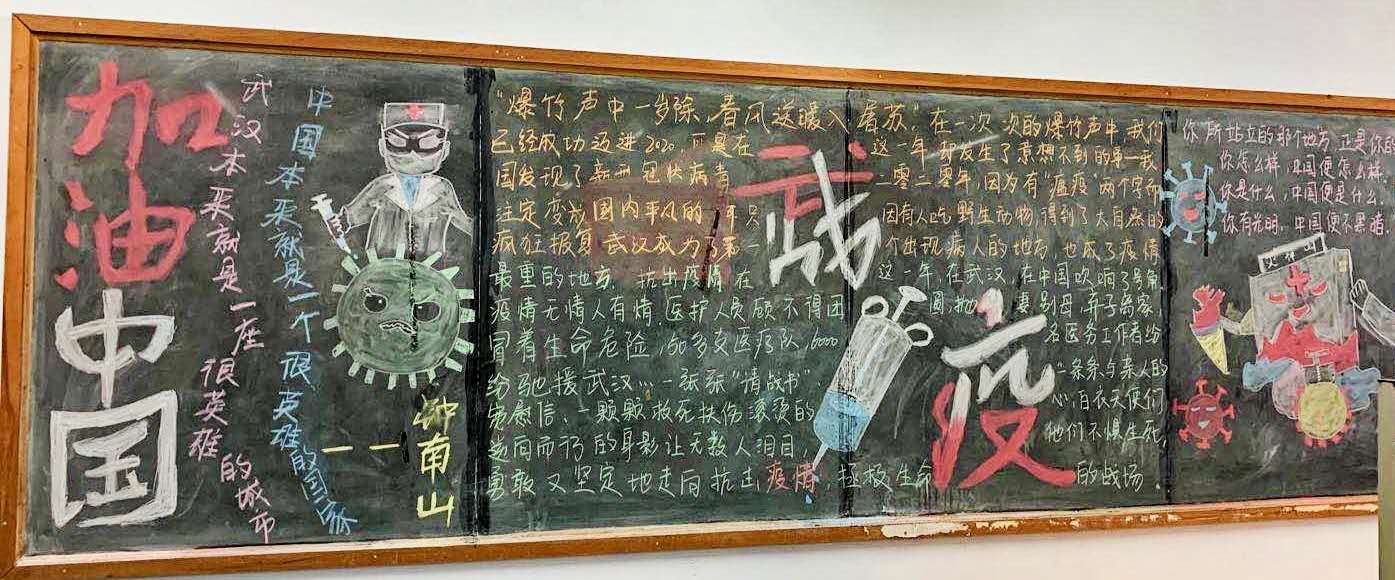 加油中国
武汉本来就是一座很英雄的城市
中国本来就是一个很英雄的国家
——钟南山
战疫
"爆竹声中一岁除,春风送暖入屠苏",在一次次的爆竹声中,我们
已经成功迈进2020,可是在这一年却发生了意想不到的事——我
国发现了新型冠状病毒,二零二零年,因为有"瘟疫"两个字而
注定变成国内不平凡的一年,只因有人吃野生动物,得到了大自然的
疯狂报复,武汉成为了第一个出现病人的地方,也成了疫情
最重的地方,抗击疫情在这一年,在武汉,在中国吹响了号角
疫情无情人有情,医护人员顾不得团圆,抛 妻别母,弃子离家,
冒着生命危险,150多支医疗队,6000 名医务工作者纷
纷驰援武汉…一张张"请战书" 一条条与亲人的
安慰信,一颗颗救死扶伤滚烫的心,白衣天使们
逆向而行的身影让无数人泪目,他们不惧生死,
勇敢又坚定地走向抗击疫情,拯救生命的战场。
你所站立的那个地方,正是你的
你怎么样,中国便怎么样。
你是什么,中国便是什么。
你有光明,中国便不黑暗。